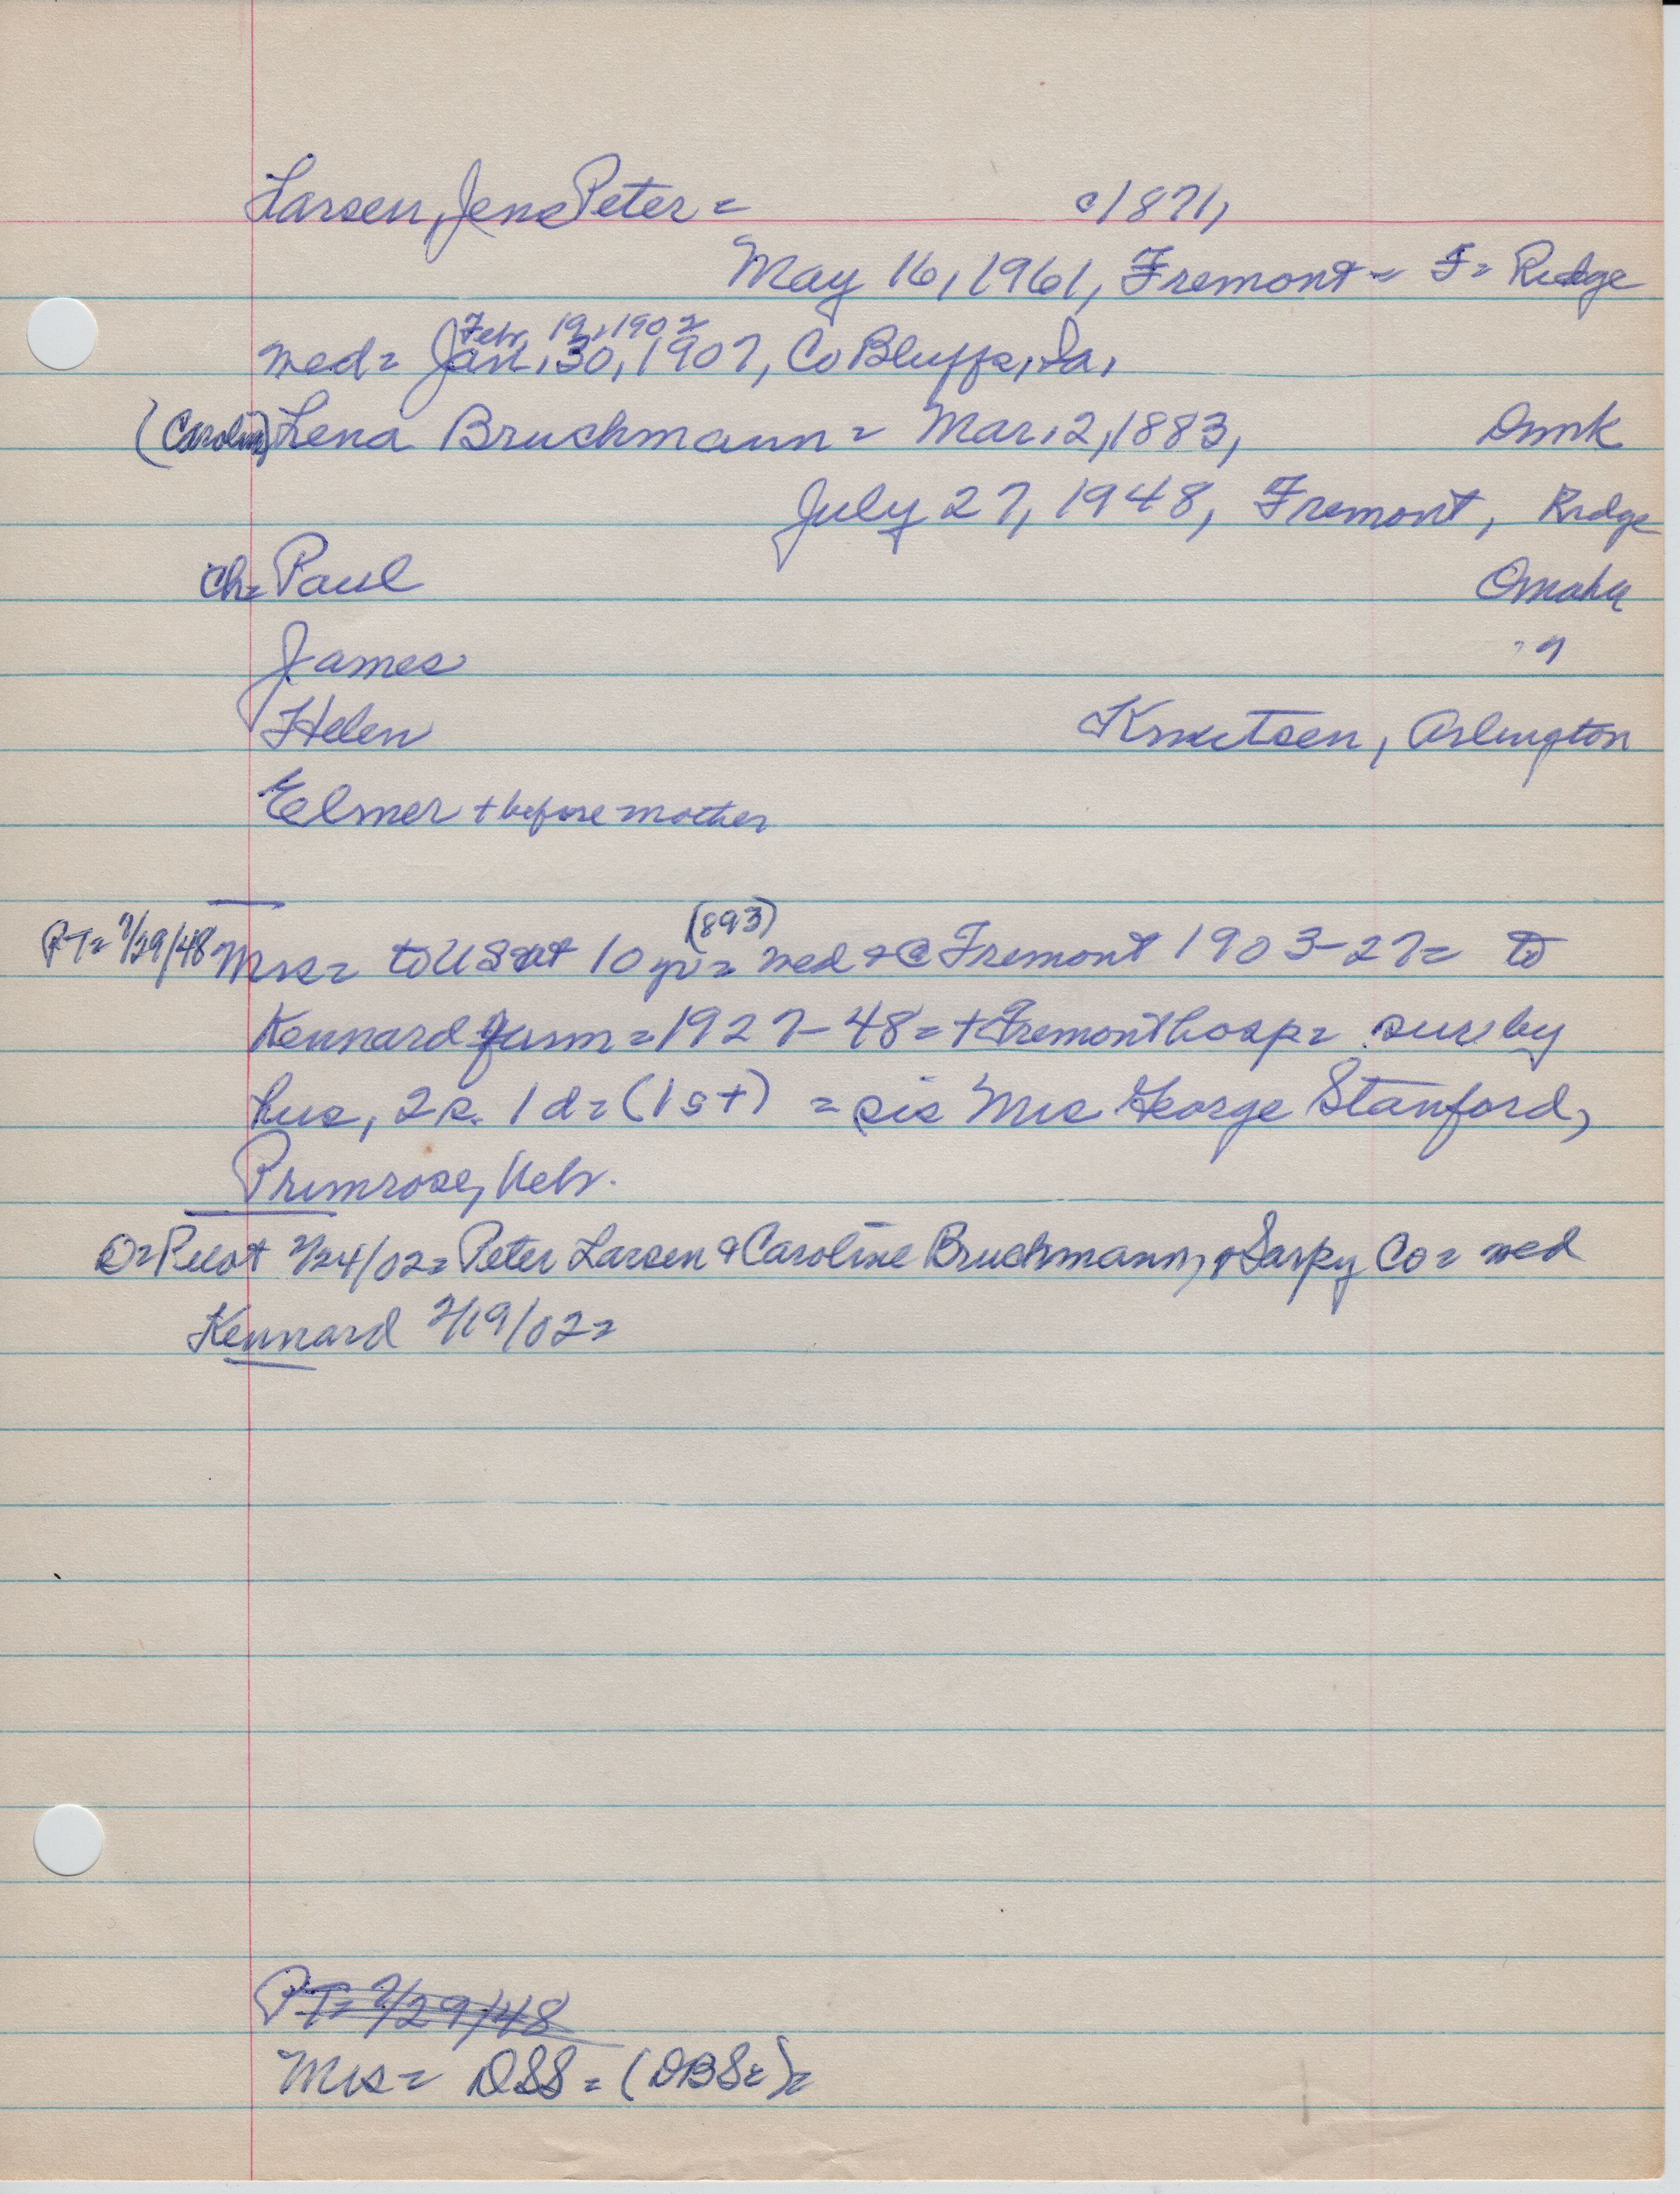 Larsen, Jens Peter = c1871,
May 16, 1961, Fremont = F= Ridge
Febr. 19, 1902
wed= Jan. 30, 1907, Co Bluffs, Ia,
(Caroline) Lena Bruchmann = Mar. 2, 1883, Dmk
July 27, 1948, Fremont, Ridge
Ch= Paul Omaha
James "
Helen Knutsen, Arlington
Elmer + before mother
(893)
PT= 7/29/48 Mrs= to US at 10 yr= wed + @ Fremont 1903-27= to
Kennard farm = 1927-48= + Fremont hosp= surv by
hus, 2 s. 1 d= (1 s +) = sis Mrs George Stanford,
Primrose, Nebr.
D= Pilot 2/24/02= Peter Larsen & Caroline Bruchmann, Sarpy Co= wed
Kennard 2/19/02=
PT= 7/29/48
Mrs= DSS= (DBS=)=